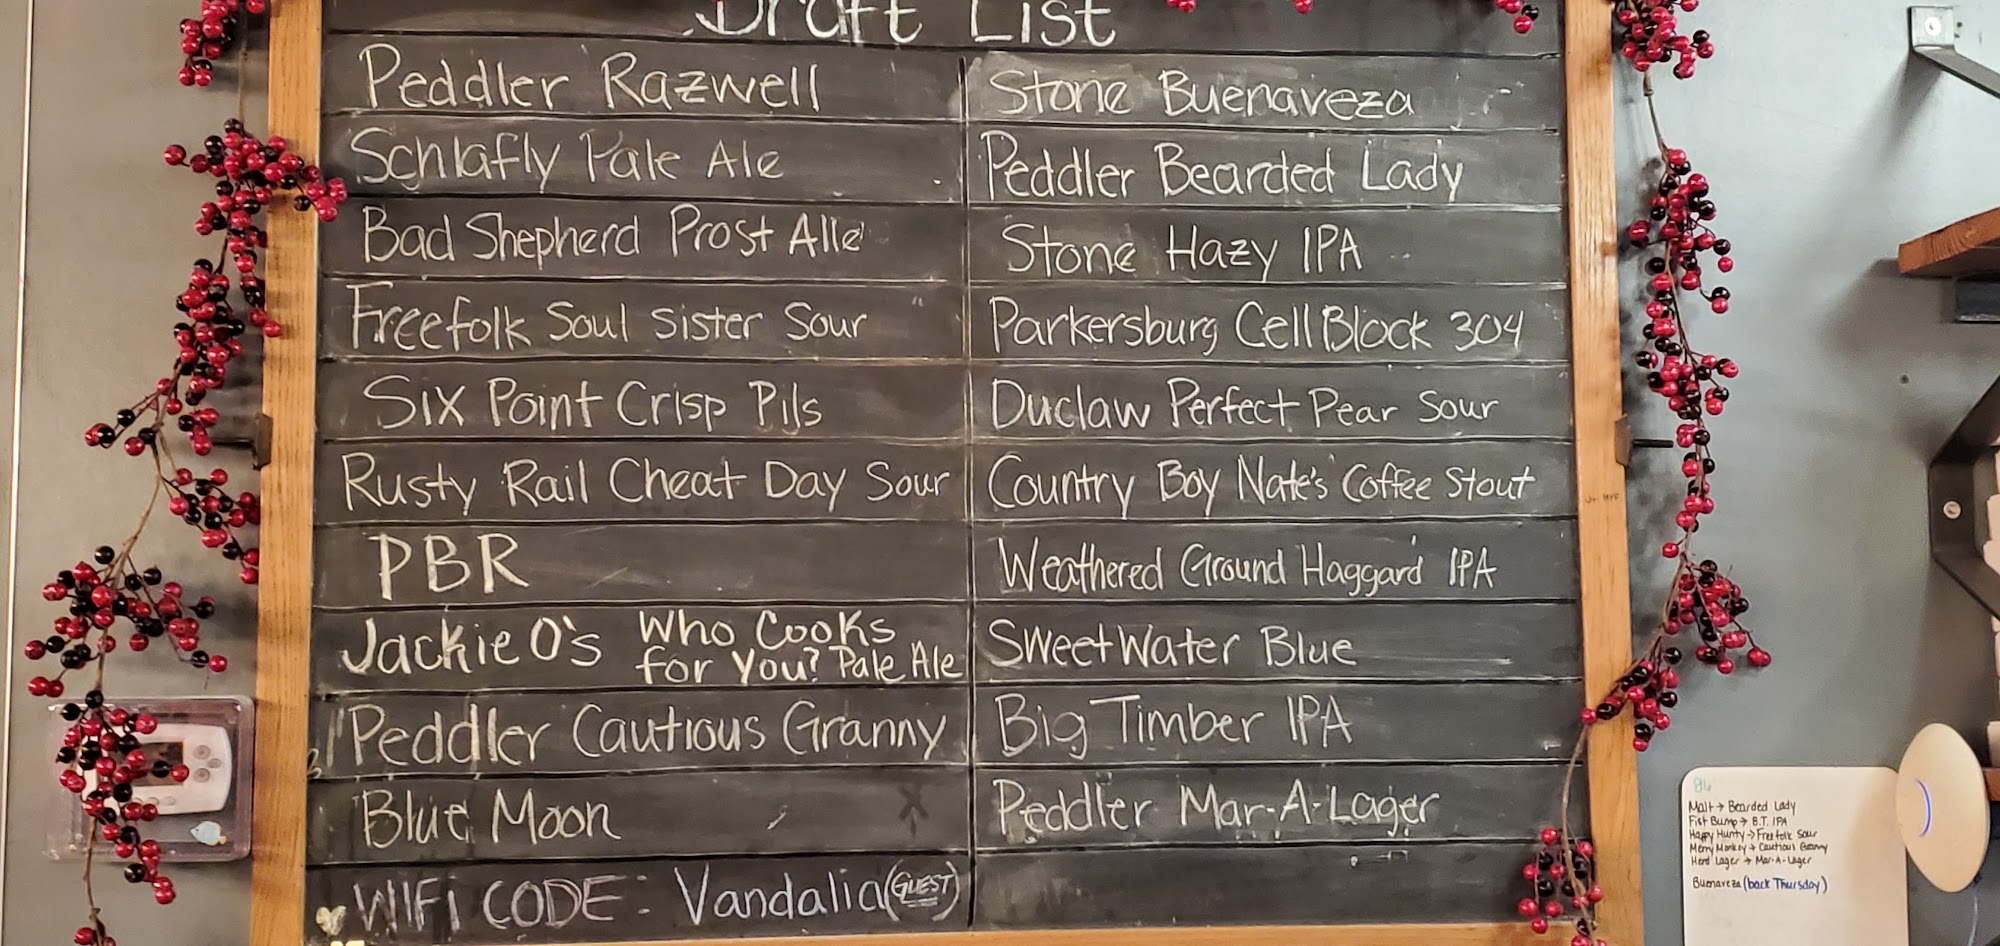 Draft List
Peddler Razwell
Schlafly Pale Ale
Bad Shepherd Prost Alle
Freefolk Soul Sister Sour
Six Point Crisp Pils
Rusty Rail Cheat Day Sour
PBR
Jackie O's Who Cooks
for You? Pale Ale
Peddler Cautious Granny
Blue Moon
WIFI CODE: Vandalia (GUEST)
Stone Buenaveza
Peddler Bearded Lady
Stone Hazy IPA
Parkersburg Cell Block 304
Duclaw Perfect Pear Sour
Country Boy Nate's Coffee Stout
Weathered Ground Haggard IPA
SweetWater Blue
Big Timber IPA
Peddler Mar-A-Lager
86
Malt → Bearded Lady
Fist Bump → B.T. IPA
Happy Hunty → Freefolk Sour
Merry Monkey → Cautious Granny
Herd Lager → Mar-A-Lager
Buenaveza (back Thursday)